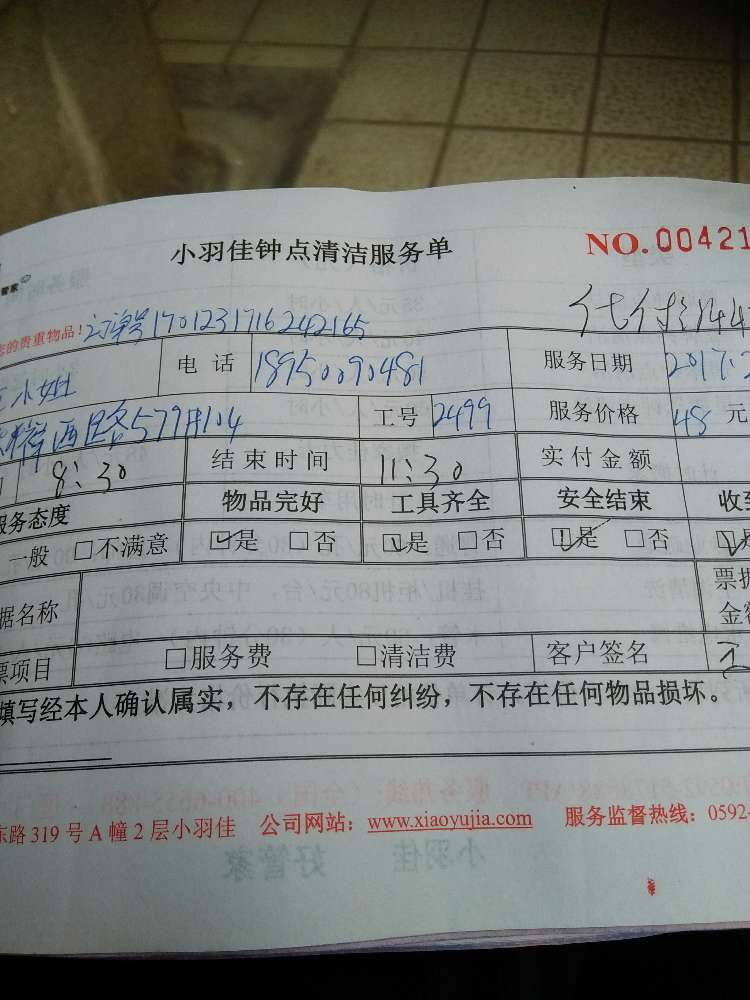 小羽佳钟点清洁服务单 NO.00421
管家
您的贵重物品! 订单号1701231716242165 代付144
小姐 电话 18950090481 服务日期 2017.2
西路579#104 工号 2499 服务价格 48元
8:30 结束时间 11:30 实付金额
服务态度 物品完好 工具齐全 安全结束 收到
一般 □不满意 ☑是 □否 ☑是 □否 ☑是 □否 ☑是
据名称 票据
金额
票项目 □服务费 □清洁费 客户签名
填写经本人确认属实，不存在任何纠纷，不存在任何物品损坏。
东路319号A幢2层小羽佳 公司网站：www.xiaoyujia.com 服务监督热线：0592-